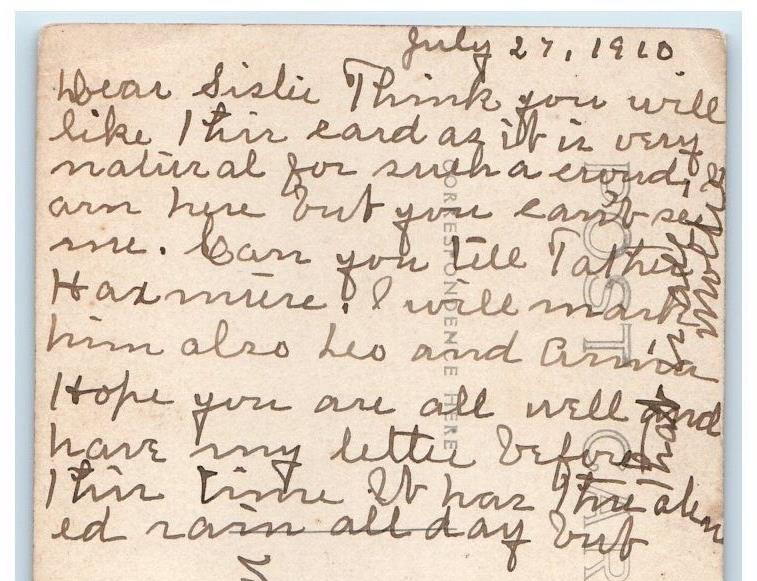 July 27, 1910
Dear Sislie Think you will
like this card as it is very
natural for such a crowd, I
am here but you can't see
me. Can you tell Father
Haxmire. I will mark
him also Leo and Anna
Hope you are all well and
have my letter before
this time It has threaten
ed rain all day but
POST CAR
CORRESPONDENCE HERE